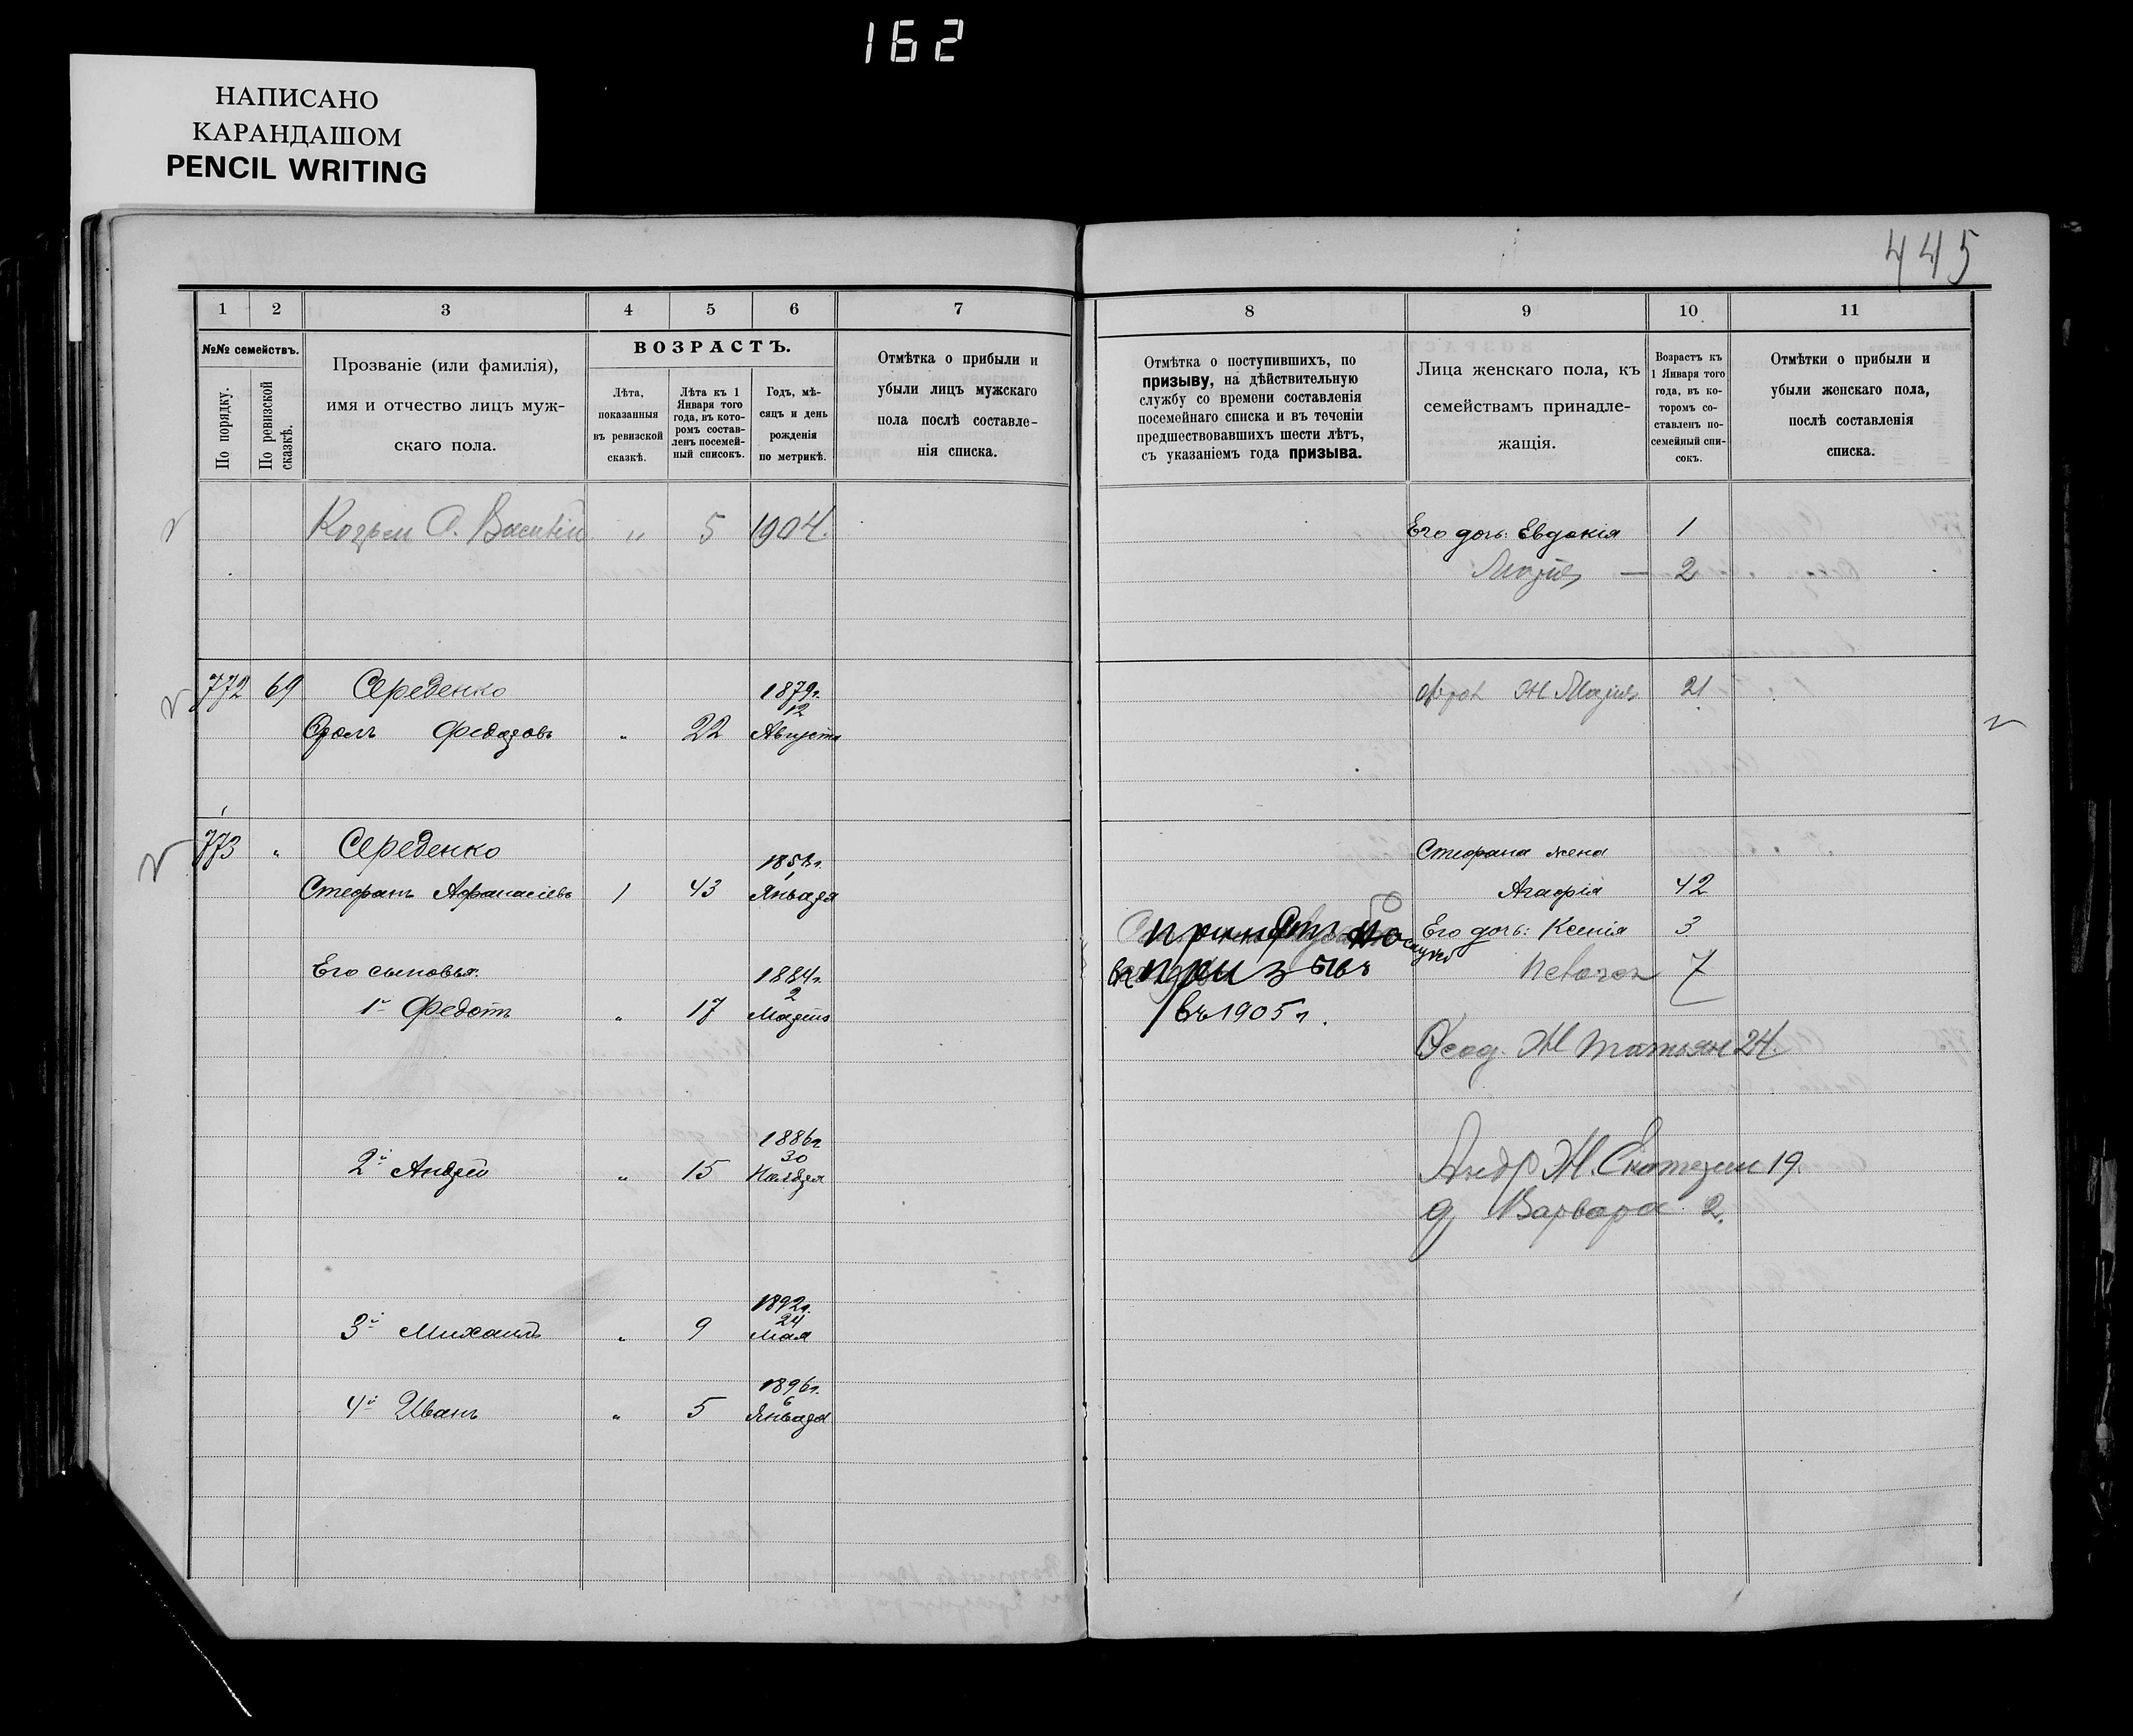 162
НАПИСАНО
КАРАНДАШОМ
PENCIL WRITING
445
1 2 3 4 5 6 7
№№ семействъ.
По порядку.
По ревизской сказкѣ.
Прозваніе (или фамилія),
имя и отчество лицъ муж-
скаго пола.
ВОЗРАСТЪ.
Лѣта,
показанныя
въ ревизской
сказкѣ.
Лѣта къ 1
Января того
года, въ кото-
ромъ состав-
ленъ посемей-
ный списокъ.
Годъ, мѣ-
сяцъ и день
рожденія
по метрикѣ.
Отмѣтка о прибыли и
убыли лицъ мужскаго
пола послѣ составле-
нія списка.
8 9 10 11
Отмѣтка о поступившихъ, по
призыву, на дѣйствительную
службу со времени составленія
посемейнаго списка и въ теченіи
предшествовавшихъ шести лѣтъ,
съ указаніемъ года призыва.
Лица женскаго пола, къ
семействамъ принадле-
жащія.
Возрастъ къ
1 Января того
года, въ ко-
торомъ со-
ставленъ по-
семейный спи-
сокъ.
Отмѣтки о прибыли и
убыли женскаго пола,
послѣ составленія
списка.
С. " 5 1904.
Его дочь: Евдокія 1
Марія — 2
772 69 Середенко 1879г.
12
Ѳедоровъ " 22 Августа
Ж Марія 21
773 " Середенко 1858г.
1
Стефанъ Афанасіевъ 1 43 Января
Стефана жена
Агафія 42
Его дочь: Ксенія 3
7
принятъ по
призывъ
въ 1905 г.
Его сыновья: 1884г.
2
1й Федотъ " 17 Марта
Ж Татьян 24.
1886г
30
2й Андрей " 15 Ноября
Андр Ж. Екатерин 19.
д Варвара 2.
1892г.
24
3й Михаилъ " 9 Мая
1896г.
6
4й Иванъ " 5 Января